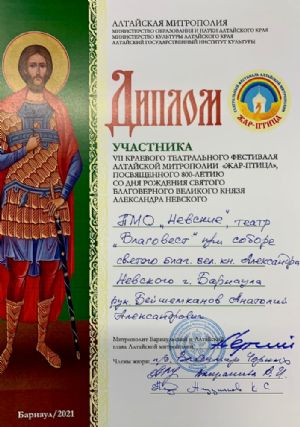 АЛТАЙСКАЯ МИТРОПОЛИЯ
МИНИСТЕРСТВО ОБРАЗОВАНИЯ И НАУКИ АЛТАЙСКОГО КРАЯ
МИНИСТЕРСТВО КУЛЬТУРЫ АЛТАЙСКОГО КРАЯ
АЛТАЙСКИЙ ГОСУДАРСТВЕННЫЙ ИНСТИТУТ КУЛЬТУРЫ
ЖАР-ПТИЦА
ДИПЛОМ
УЧАСТНИКА
VII КРАЕВОГО ТЕАТРАЛЬНОГО ФЕСТИВАЛЯ
АЛТАЙСКОЙ МИТРОПОЛИИ «ЖАР-ПТИЦА»,
ПОСВЯЩЕННОГО 800-ЛЕТИЮ
СО ДНЯ РОЖДЕНИЯ СВЯТОГО
БЛАГОВЕРНОГО ВЕЛИКОГО КНЯЗЯ
АЛЕКСАНДРА НЕВСКОГО
ПМО „Невские", театр
„Благовест" при соборе
святого благ. вел. кн. Александра
Невского г. Барнаула
рук. Бейшемканов Анатолий
Александрович
Митрополит Барнаульский и Алтайский
глава Алтайской митрополии
Члены жюри:
Барнаул/2021